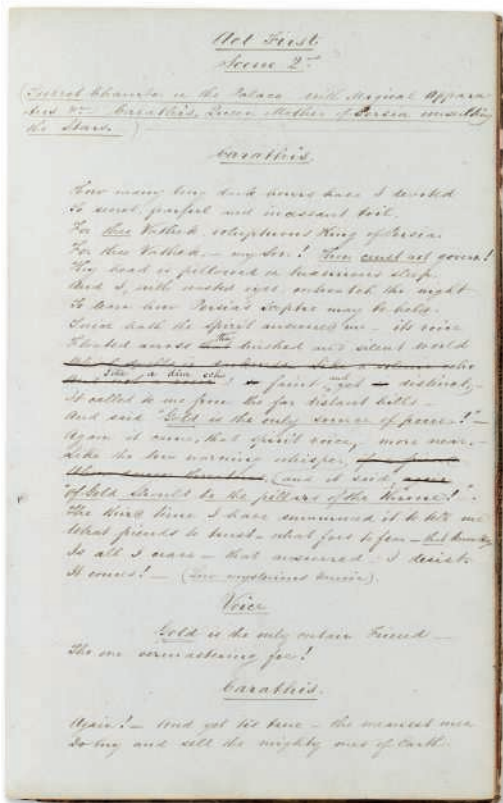 Act First
Scene 2nd
(Turret Chamber in the Palace with Magical Appara
tus &c. Carathis, Queen Mother of Persia consulting
the Stars.)
Carathis.
How many long dark hours have I devoted
To secret, fearful and incessant toil,
For thee Vathek voluptuous King of Persia.
For thee Vathek, — my Son! Thou canst not govern!
Thy head is pillowed in luxurious sleep.
And I, with wasted eyes, outwatch the night
To learn how Persia's sceptre may be held.
Twice hath the spirit answered me — its voice
Floated across the hushed and silent world
like a dim echo! faint and yet distinct,
It called to me from the far distant hills —
And said "Gold is the only source of power!" —
Again it came, that spirit voice, more near. —
Like the low warning whisper, (and it said,
"of Gold should be the pillars of the Throne!".
The third time I have summoned it to tell me
What friends to trust — what foes to fear — that
Is all I crave — that answered I desist.
It comes! — (Low mysterious music).
Voice
Gold is the only certain Friend —
The one overmastering foe!
Carathis.
Again! — And yet tis true — the meanest men
Do buy and sell the mighty ones of Earth.